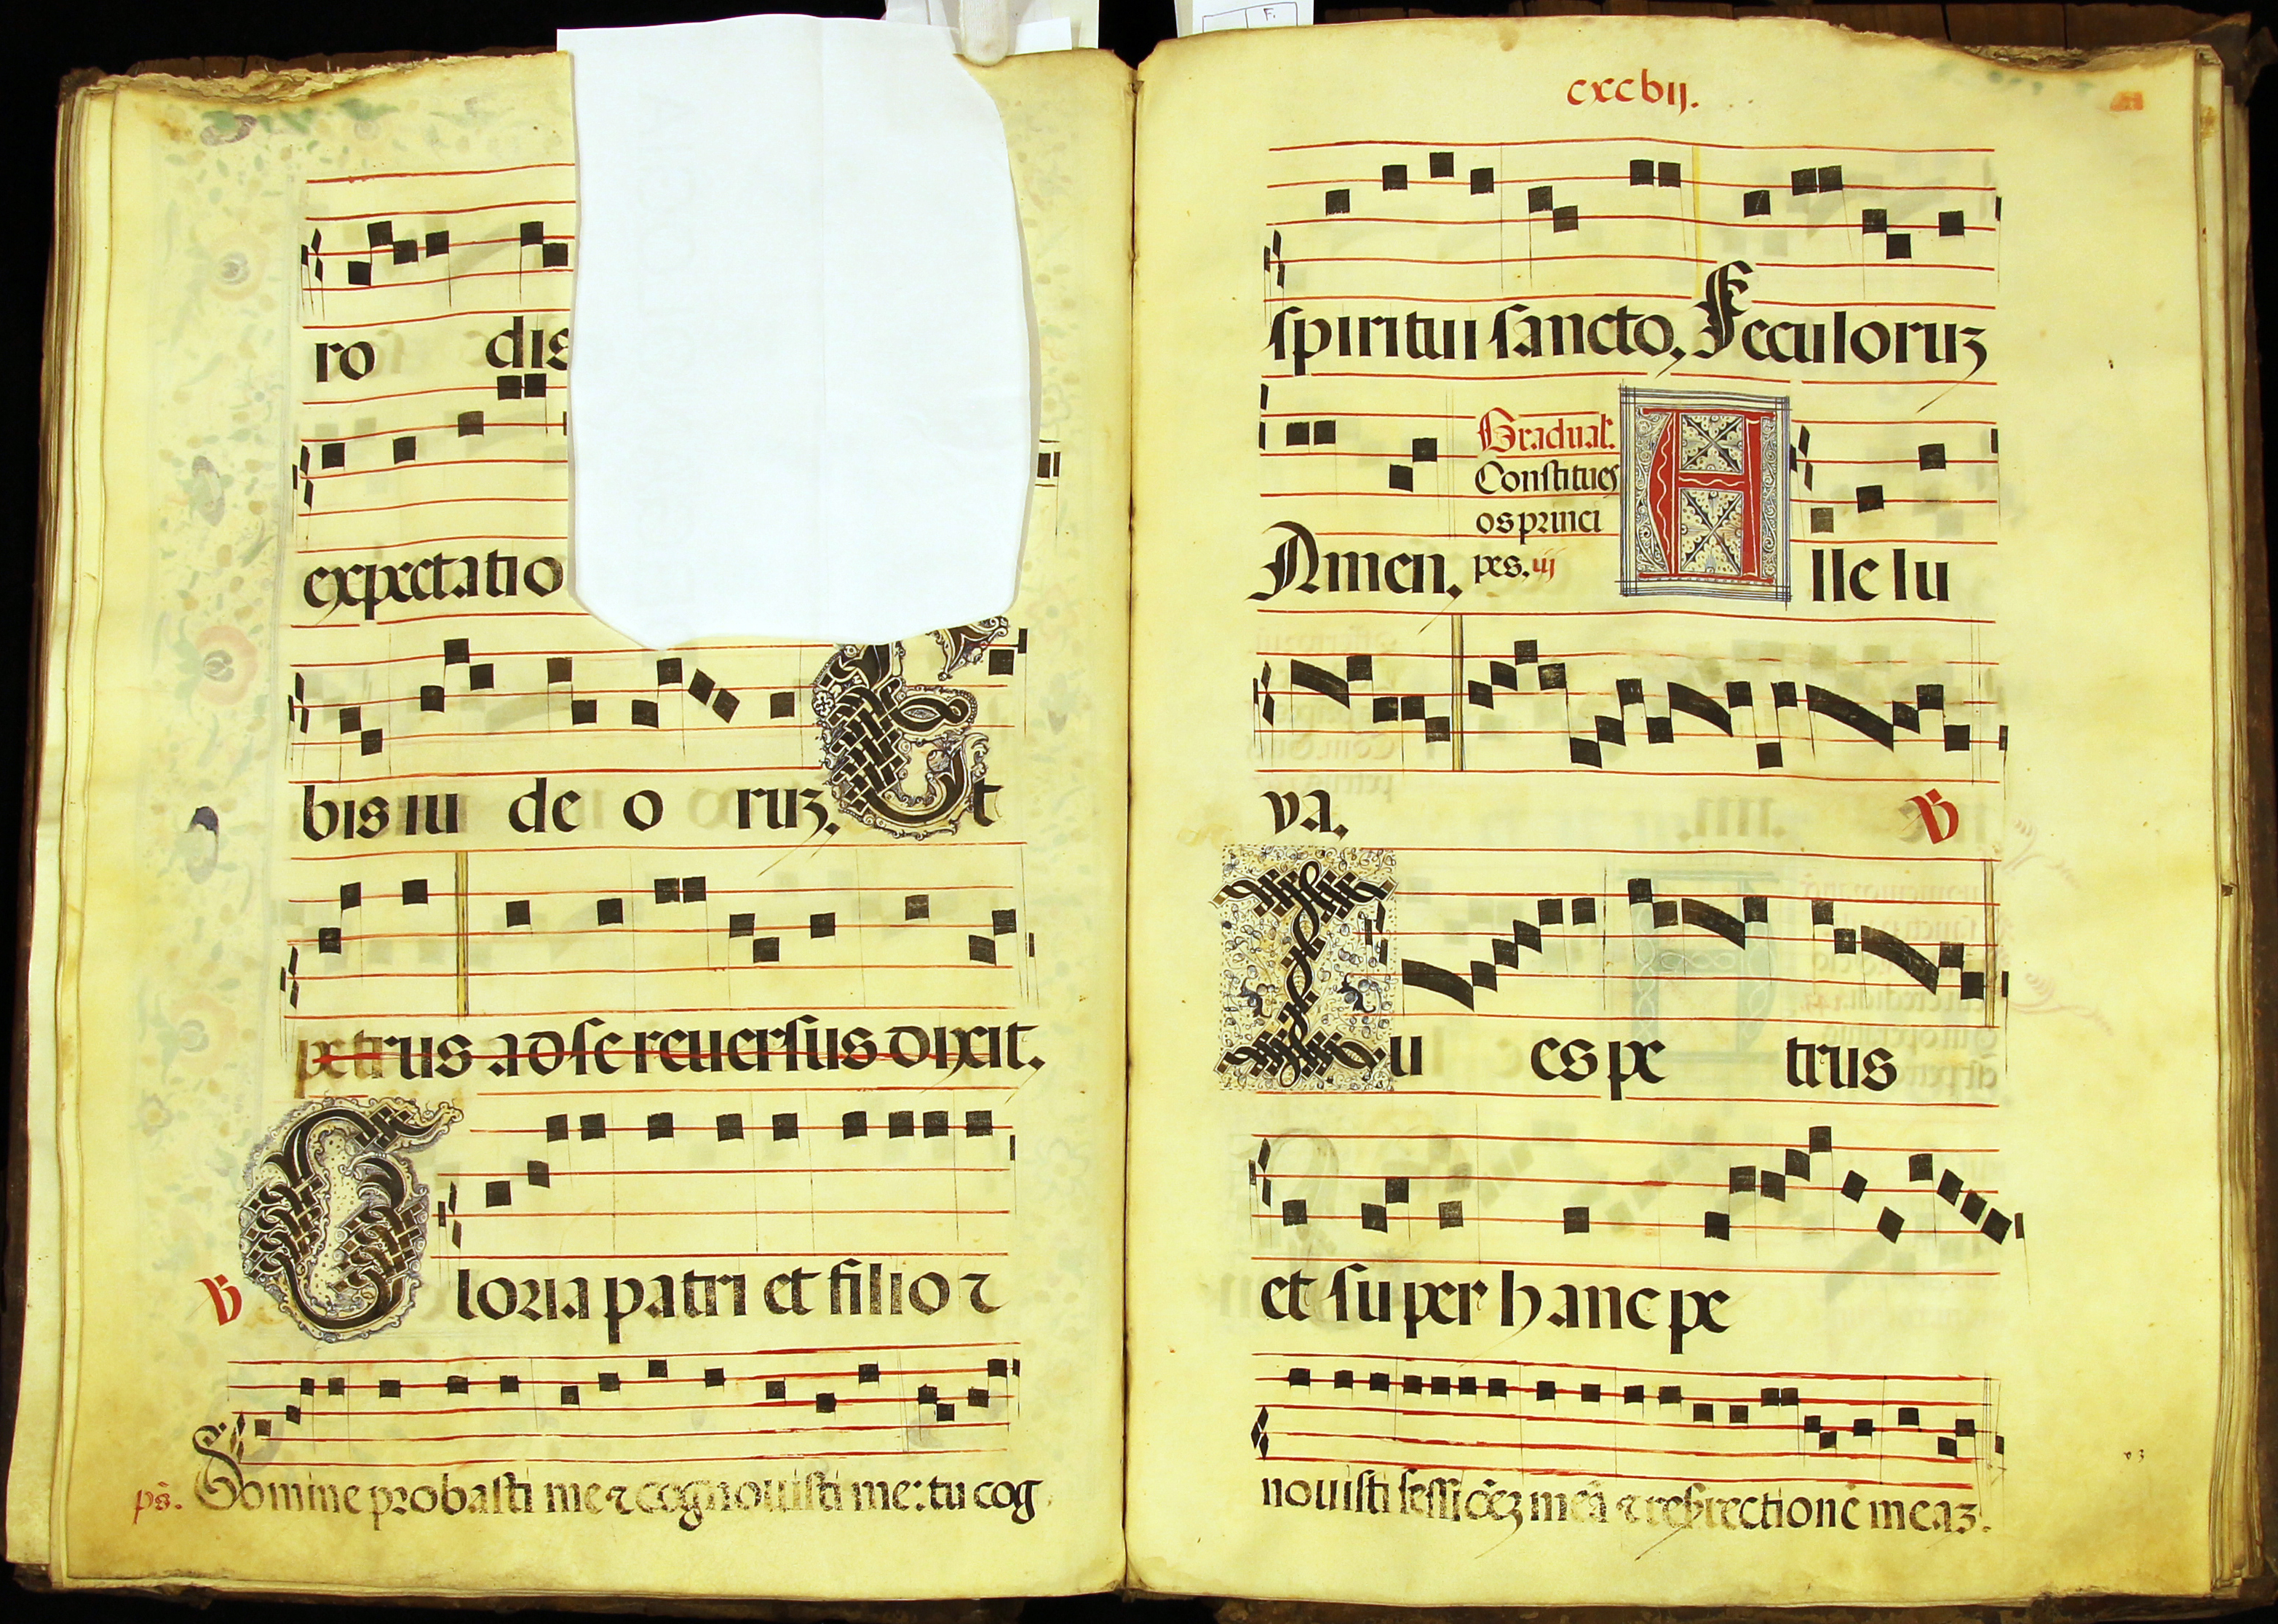 ro dis
expectatio
bis iu de o ruz. Et
petrus ad se reuersus dixit.
V Gloria patri et filio ⁊
ps. Domine probasti me ⁊ cognouisti me: tu cog
cxcvij.
spiritui sancto, Seculoruz
Gradual.
Constitues
os princi
Amen. pes. iij Alle lu
ya. V
Tu es pe trus
et super hanc pe
nouisti meā ⁊ meaz.